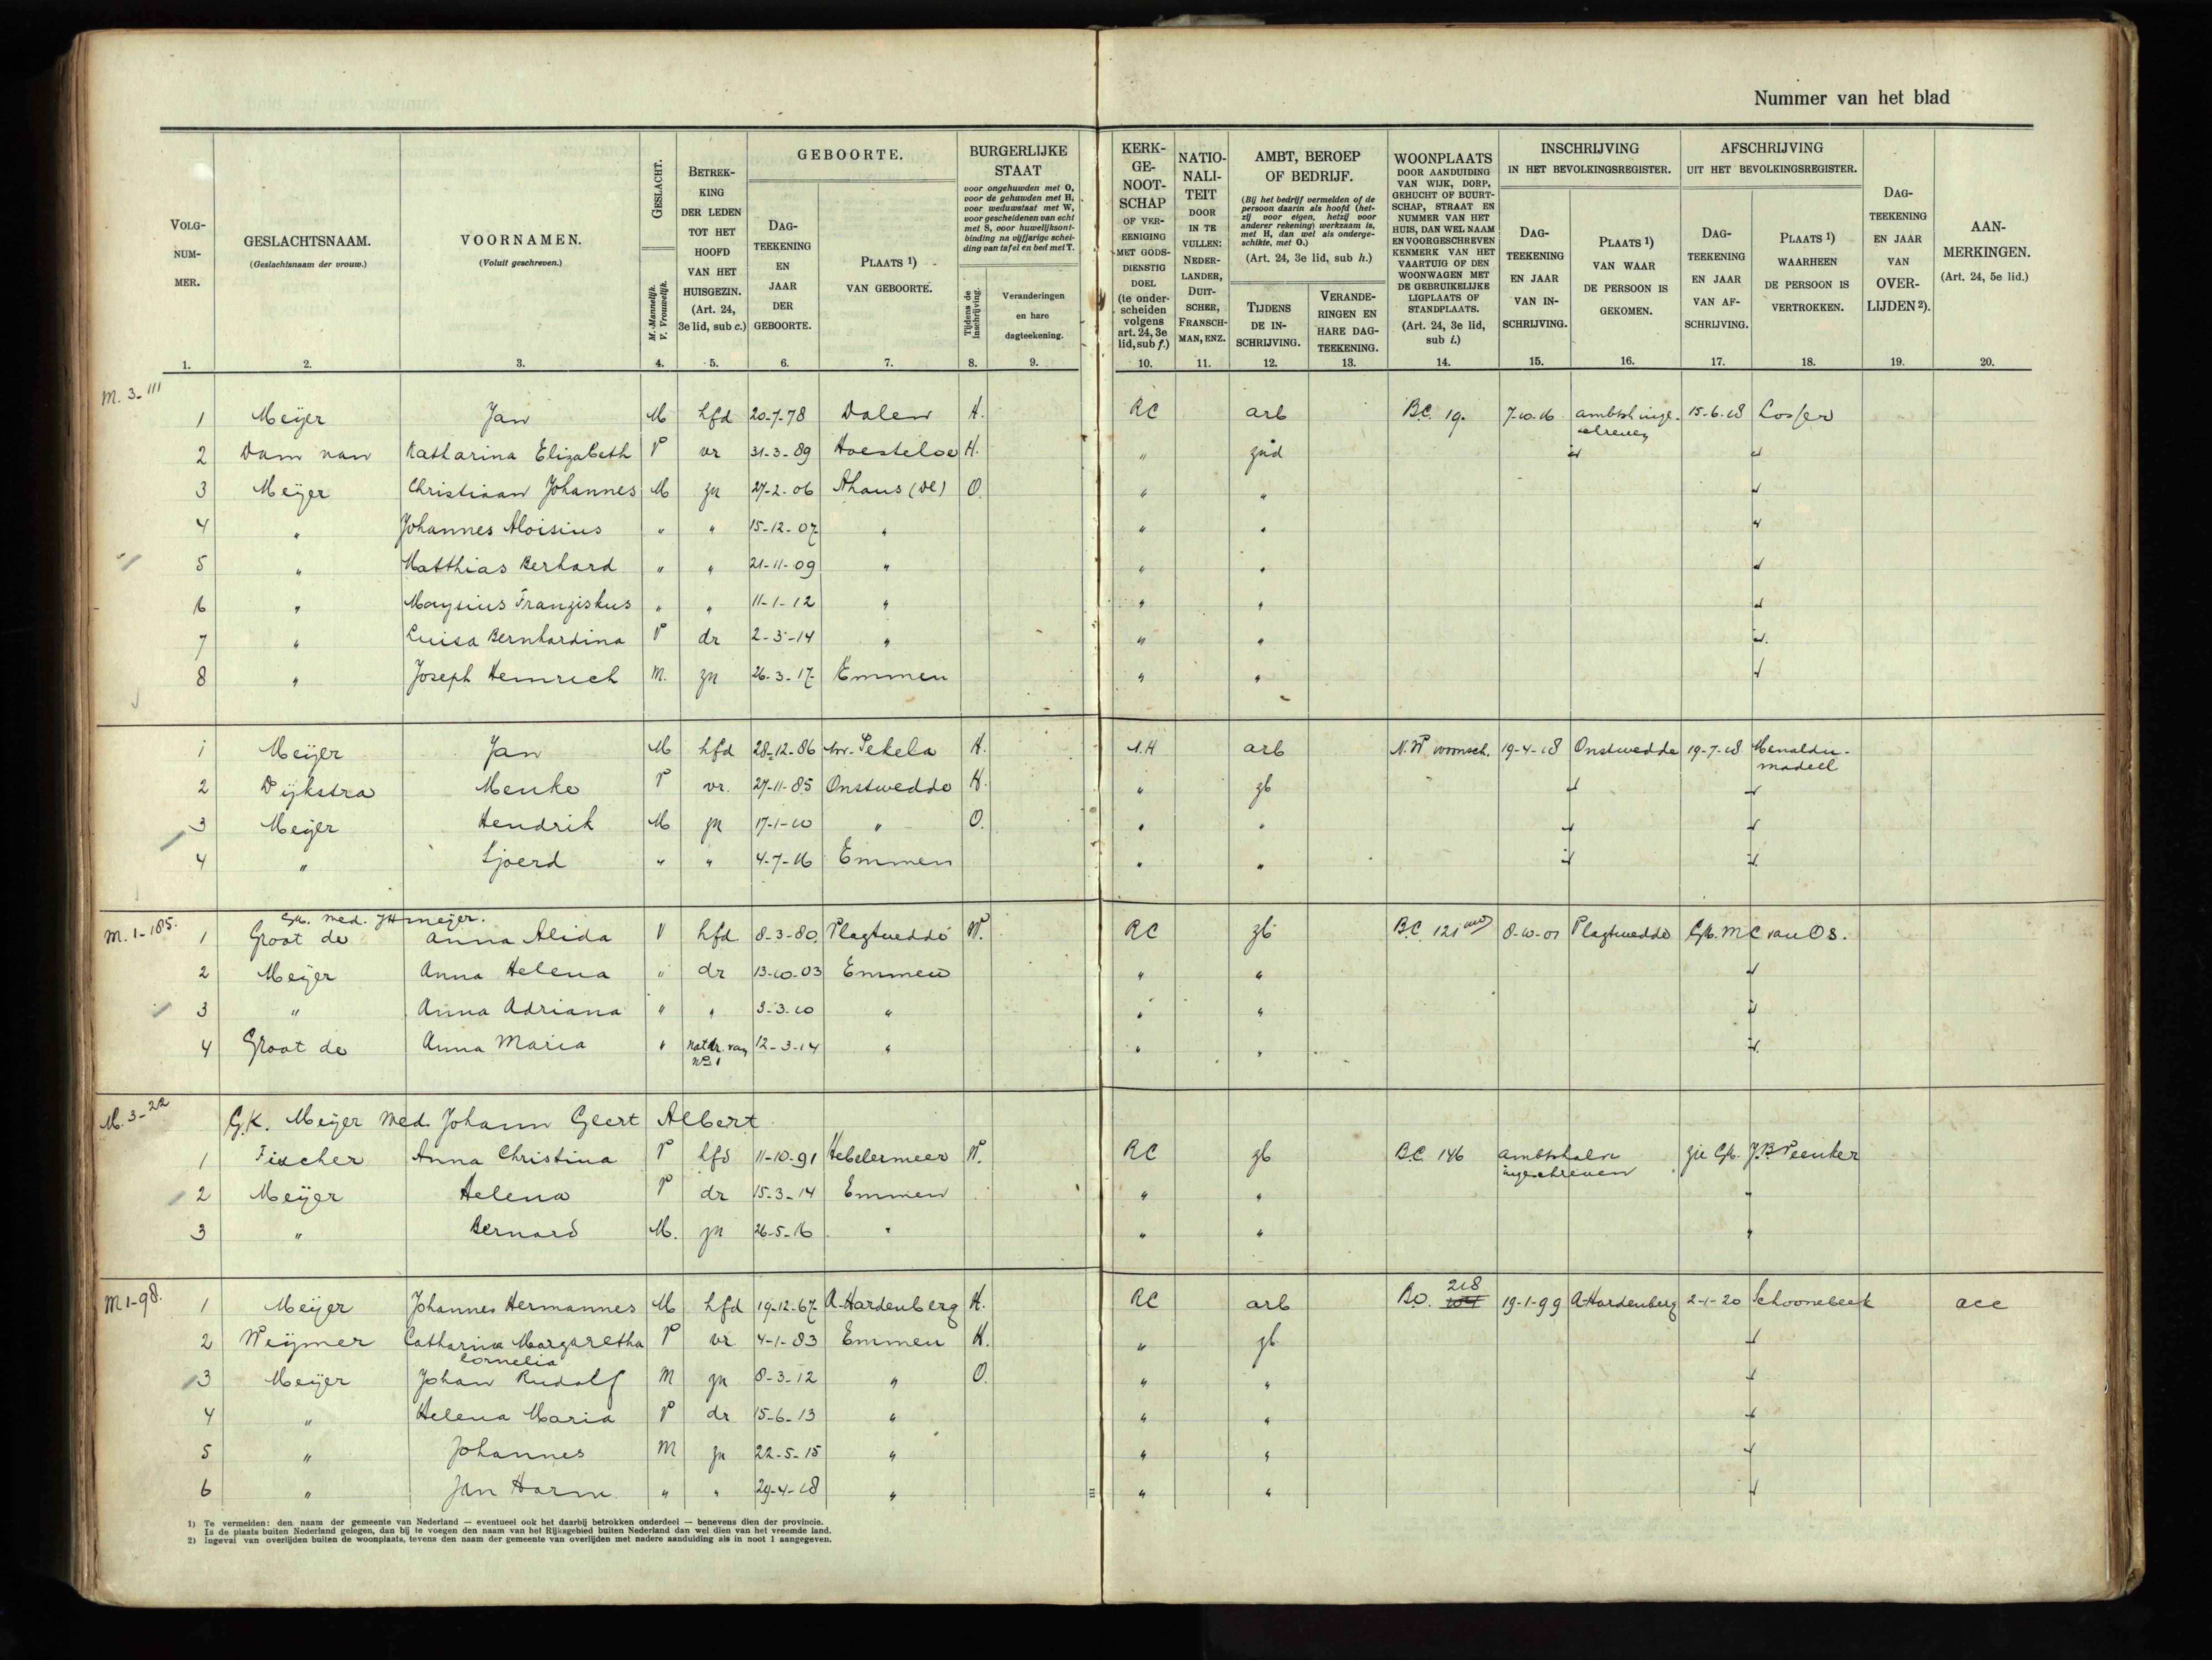 Nummer van het blad
VOLG-NUM-MER.
GESLACHTSNAAM. (Geslachtsnaam der vrouw.)
VOORNAMEN. (Voluit geschreven.)
GESLACHT. M. Mannelijk. V. Vrouwelijk.
BETREK-KING DER LEDEN TOT HET HOOFD VAN HET HUISGEZIN. (Art. 24, 3e lid, sub c.)
GEBOORTE.
DAG-TEEKENING EN JAAR DER GEBOORTE.
PLAATS 1) VAN GEBOORTE.
BURGERLIJKE STAAT
voor ongehuwden met O, voor de gehuwden met H, voor weduwstaat met W, voor gescheidenen van echt met S, voor huwelijksont-binding na vijfjarige schei-ding van tafel en bed met T.
Tijdens de inschrijving.
Veranderingen en hare dagteekening.
KERK-GE-NOOT-SCHAP OF VER-EENIGING MET GODS-DIENSTIG DOEL (te onder-scheiden volgens art. 24, 3e lid, sub f.)
NATIO-NALI-TEIT DOOR IN TE VULLEN: NEDER-LANDER, DUIT-SCHER, FRANSCH-MAN, ENZ.
AMBT, BEROEP OF BEDRIJF.
(Bij het bedrijf vermelden of de persoon daarin als hoofd (het-zij voor eigen, hetzij voor anderer rekening) werkzaam is, met H, dan wel als onderge-schikte, met O.)
(Art. 24, 3e lid, sub h.)
TIJDENS DE IN-SCHRIJVING.
VERANDE-RINGEN EN HARE DAG-TEEKENING.
WOONPLAATS DOOR AANDUIDING VAN WIJK, DORP, GEHUCHT OF BUURT-SCHAP, STRAAT EN NUMMER VAN HET HUIS, DAN WEL NAAM EN VOORGESCHREVEN KENMERK VAN HET VAARTUIG OF DEN WOONWAGEN MET DE GEBRUIKELIJKE LIGPLAATS OF STANDPLAATS. (Art. 24, 3e lid, sub i.)
INSCHRIJVING IN HET BEVOLKINGSREGISTER.
DAG-TEEKENING EN JAAR VAN IN-SCHRIJVING.
PLAATS 1) VAN WAAR DE PERSOON IS GEKOMEN.
AFSCHRIJVING UIT HET BEVOLKINGSREGISTER.
DAG-TEEKENING EN JAAR VAN AF-SCHRIJVING.
PLAATS 1) WAARHEEN DE PERSOON IS VERTROKKEN.
DAG-TEEKENING EN JAAR VAN OVER-LIJDEN 2).
AAN-MERKINGEN. (Art. 24, 5e lid.)
1. 2. 3. 4. 5. 6. 7. 8. 9. 10. 11. 12. 13. 14. 15. 16. 17. 18. 19. 20.
M. 3-111
1 Meijer Jan M hfd 20-7-78 Dalen H. RC arb BC. 19. 7-10-16 ambtsh inge-schreven 15-6-18 Losser
2 Dam van Katharina Elizabeth V vr 31-3-89 H. " znd
3 Meijer Christiaan Johannes M zn 27-2-06 Ahaus (Dl) O. " "
4 " Johannes Aloisius " " 15-12-07 " " "
5 " Matthias Berhard " " 21-11-09 " " "
6 " Franziskus " " 11-1-12 " " "
7 " Luisa Bernhardina V dr 2-3-14 " " "
8 " Joseph Heinrich M. zn 26-3-17 Emmen " "
1 Meijer Jan M hfd 28-12-86 Pekela H. N.H arb N.W woonsch. 19-4-18 Onstwedde 19-7-18 Menaldu-madeel
2 Dijkstra Menke V vr. 27-11-85 Onstwedde H. " zb
3 Meijer Hendrik M zn 17-1-10 " O. " "
4 " Sjoerd " " 4-7-16 Emmen " "
M. 1-185. Gk. Wed. JH meijer.
1 Groot de Anna Alida V hfd. 8-3-80 Vlagtwedde W. RC zb B.C. 121 8-10-01 Vlagtwedde Gk. M C van Os.
2 Meijer Anna Helena " dr 13-10-03 Emmen " "
3 " Anna Adriana " " 3-3-10 " " "
4 Groot de Anna Maria " nat dr. van No 1 12-3-14 " " "
M. 3-22 G.K. Meijer Wed. Johann Geert Albert
1 Fischer Anna Christina V hfd 11-10-91 Hebelermeer W. RC zb B.C. 146 ambtshalve ingeschreven zie Gk. J.B. Veenker
2 Meijer Helena V dr 15-3-14 Emmen " " "
3 " Bernard M. zn 26-5-16 " " " "
M 1-98.
1 Meijer Johannes Hermannes M hfd 19-12-67 A-Hardenberg H. RC arb Bo. 218 19-1-99 A-Hardenberg 2-1-20 Schoonebeek acc
2 Weijmer Catharina Margaretha Cornelia V vr 4-1-83 Emmen H. " zb
3 Meijer Johan Rudolf M zn 8-3-12 " O. " "
4 " Helena Maria V dr 15-6-13 " " "
5 " Johannes M zn 22-5-15 " " "
6 " Jan Harm " " 29-4-18 " " "
1) Te vermelden: den naam der gemeente van Nederland — eventueel ook het daarbij betrokken onderdeel — benevens dien der provincie.
Is de plaats buiten Nederland gelegen, dan bij te voegen den naam van het Rijksgebied buiten Nederland dan wel dien van het vreemde land.
2) Ingeval van overlijden buiten de woonplaats, tevens den naam der gemeente van overlijden met nadere aanduiding als in noot 1 aangegeven.